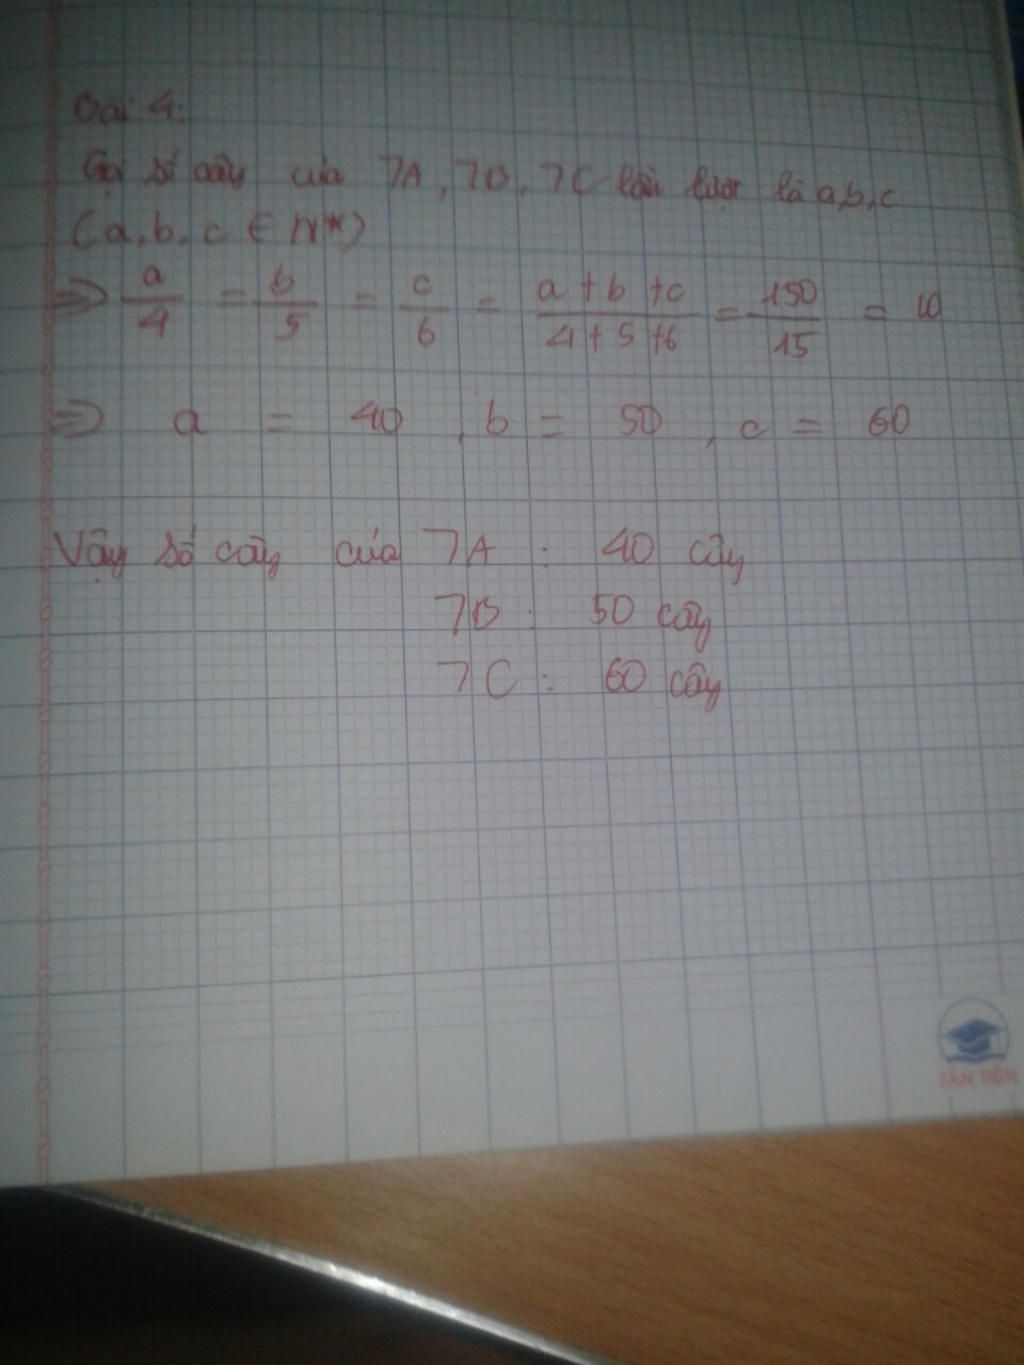 Bài 4:
Gọi số cây của 7A, 7B, 7C lần lượt là a, b, c
(a, b, c ∈ N*)
=> a/4 = b/5 = c/6 = (a + b + c)/(4 + 5 + 6) = 150/15 = 10
=> a = 40, b = 50, c = 60
Vậy số cây của 7A : 40 cây
7B : 50 cây
7C : 60 cây
TÂN TIẾN